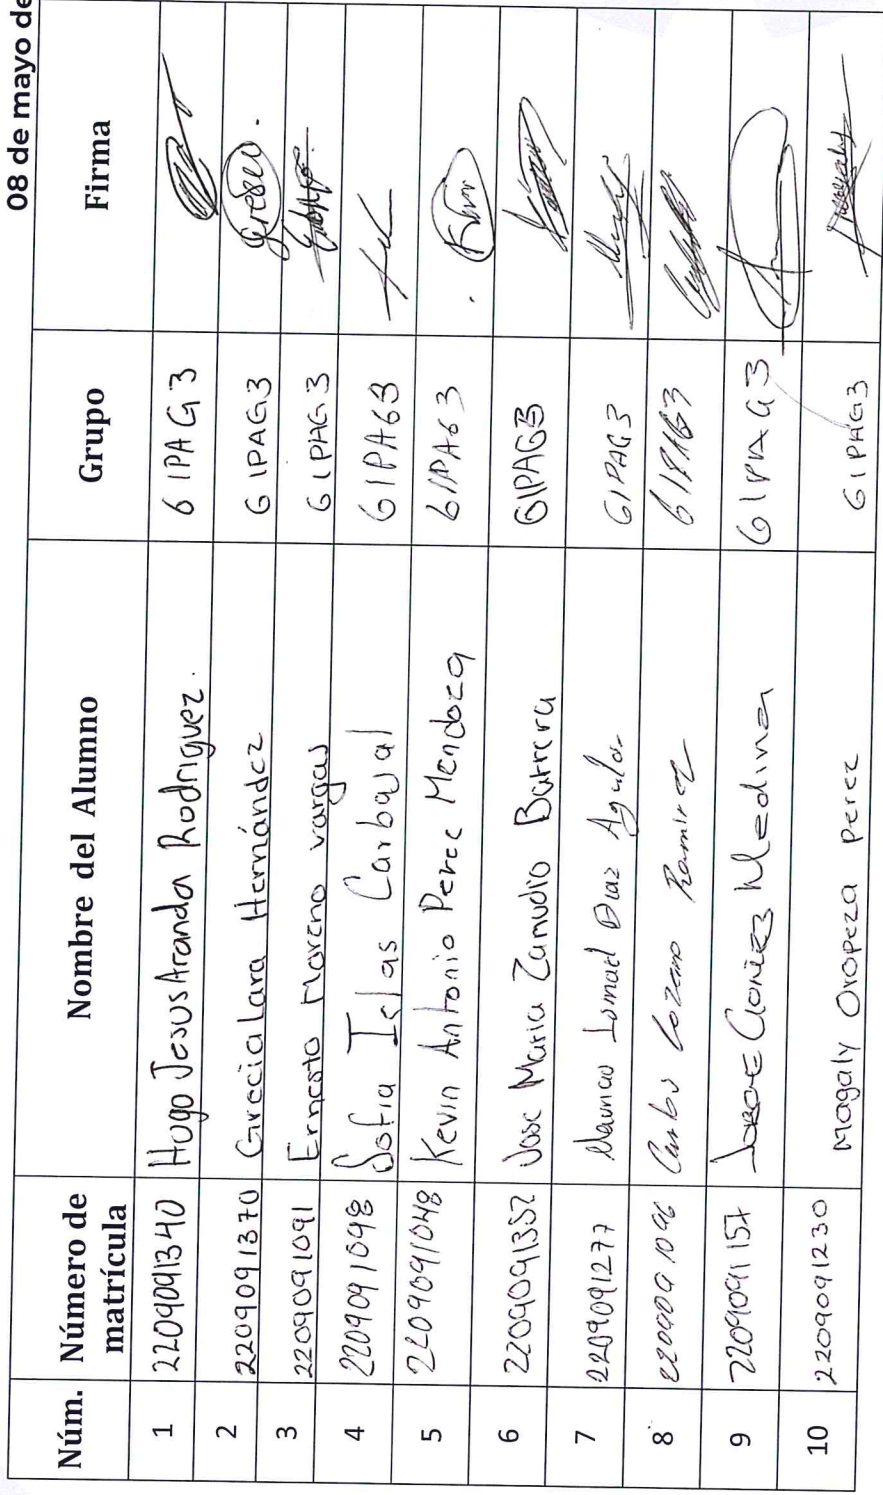 08 de mayo de
Núm. Número de matrícula Nombre del Alumno Grupo Firma
1 2209091340 Hugo Jesus Aranda Rodriguez. 61PAG3
2 2209091370 Grecia Lara Hernández 61PAG3
3 2209091091 Ernesto Moreno vargas 61PAG3
4 2209091098 Sofia Islas Carbajal 61PAG3
5 2209091048 Kevin Antonio Perez Mendoza 61PAG3
6 2209091352 Jose Maria Zamudio Barrera 61PAG3
7 2209091277 Mauricio Ismael Diaz Aguilar 61PAG3
8 2209091096 Carlos Lozano Ramirez 61PAG3
9 2209091157 Jorge Gomez Medina 61PAG3
10 2209091230 Magaly Oropeza Perez 61PAG3